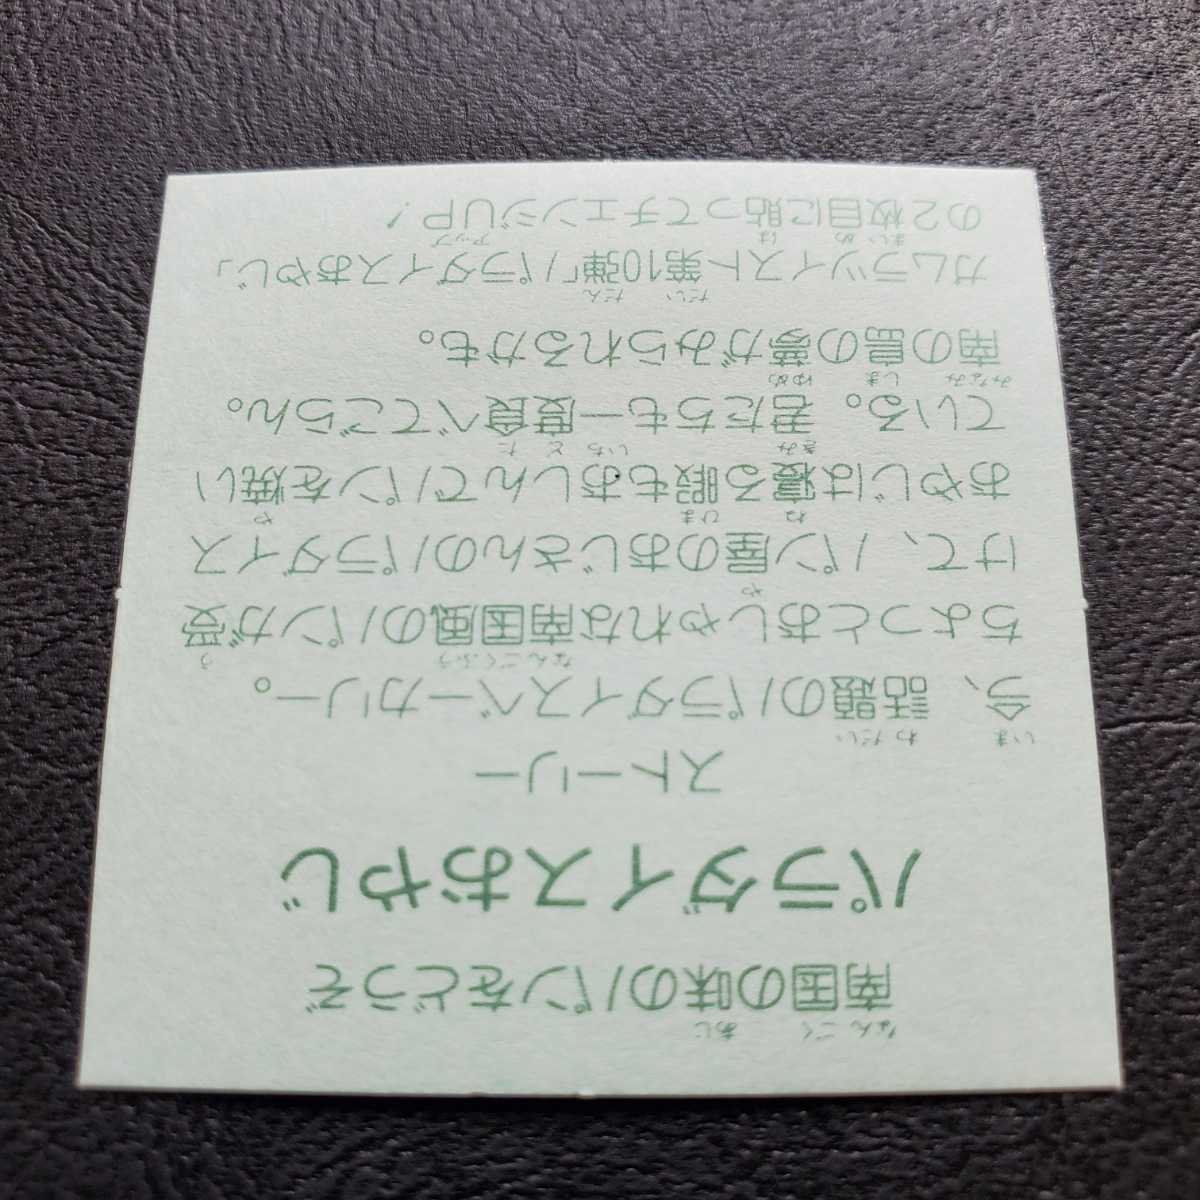 南国の味のパンをどうぞ
パラダイスおやじ
ストーリー
今、話題のパラダイスベーカリー。
ちょっとおしゃれな南国風のパンが受
けて、パン屋のおじさんのパラダイス
おやじは寝る暇もおしんでパンを焼い
ている。君たちも一度食べてごらん。
南の島の夢がみられるかも。
ガムラツイスト第10弾「パラダイスおやじ」
の2枚目に貼ってチェンジUP!